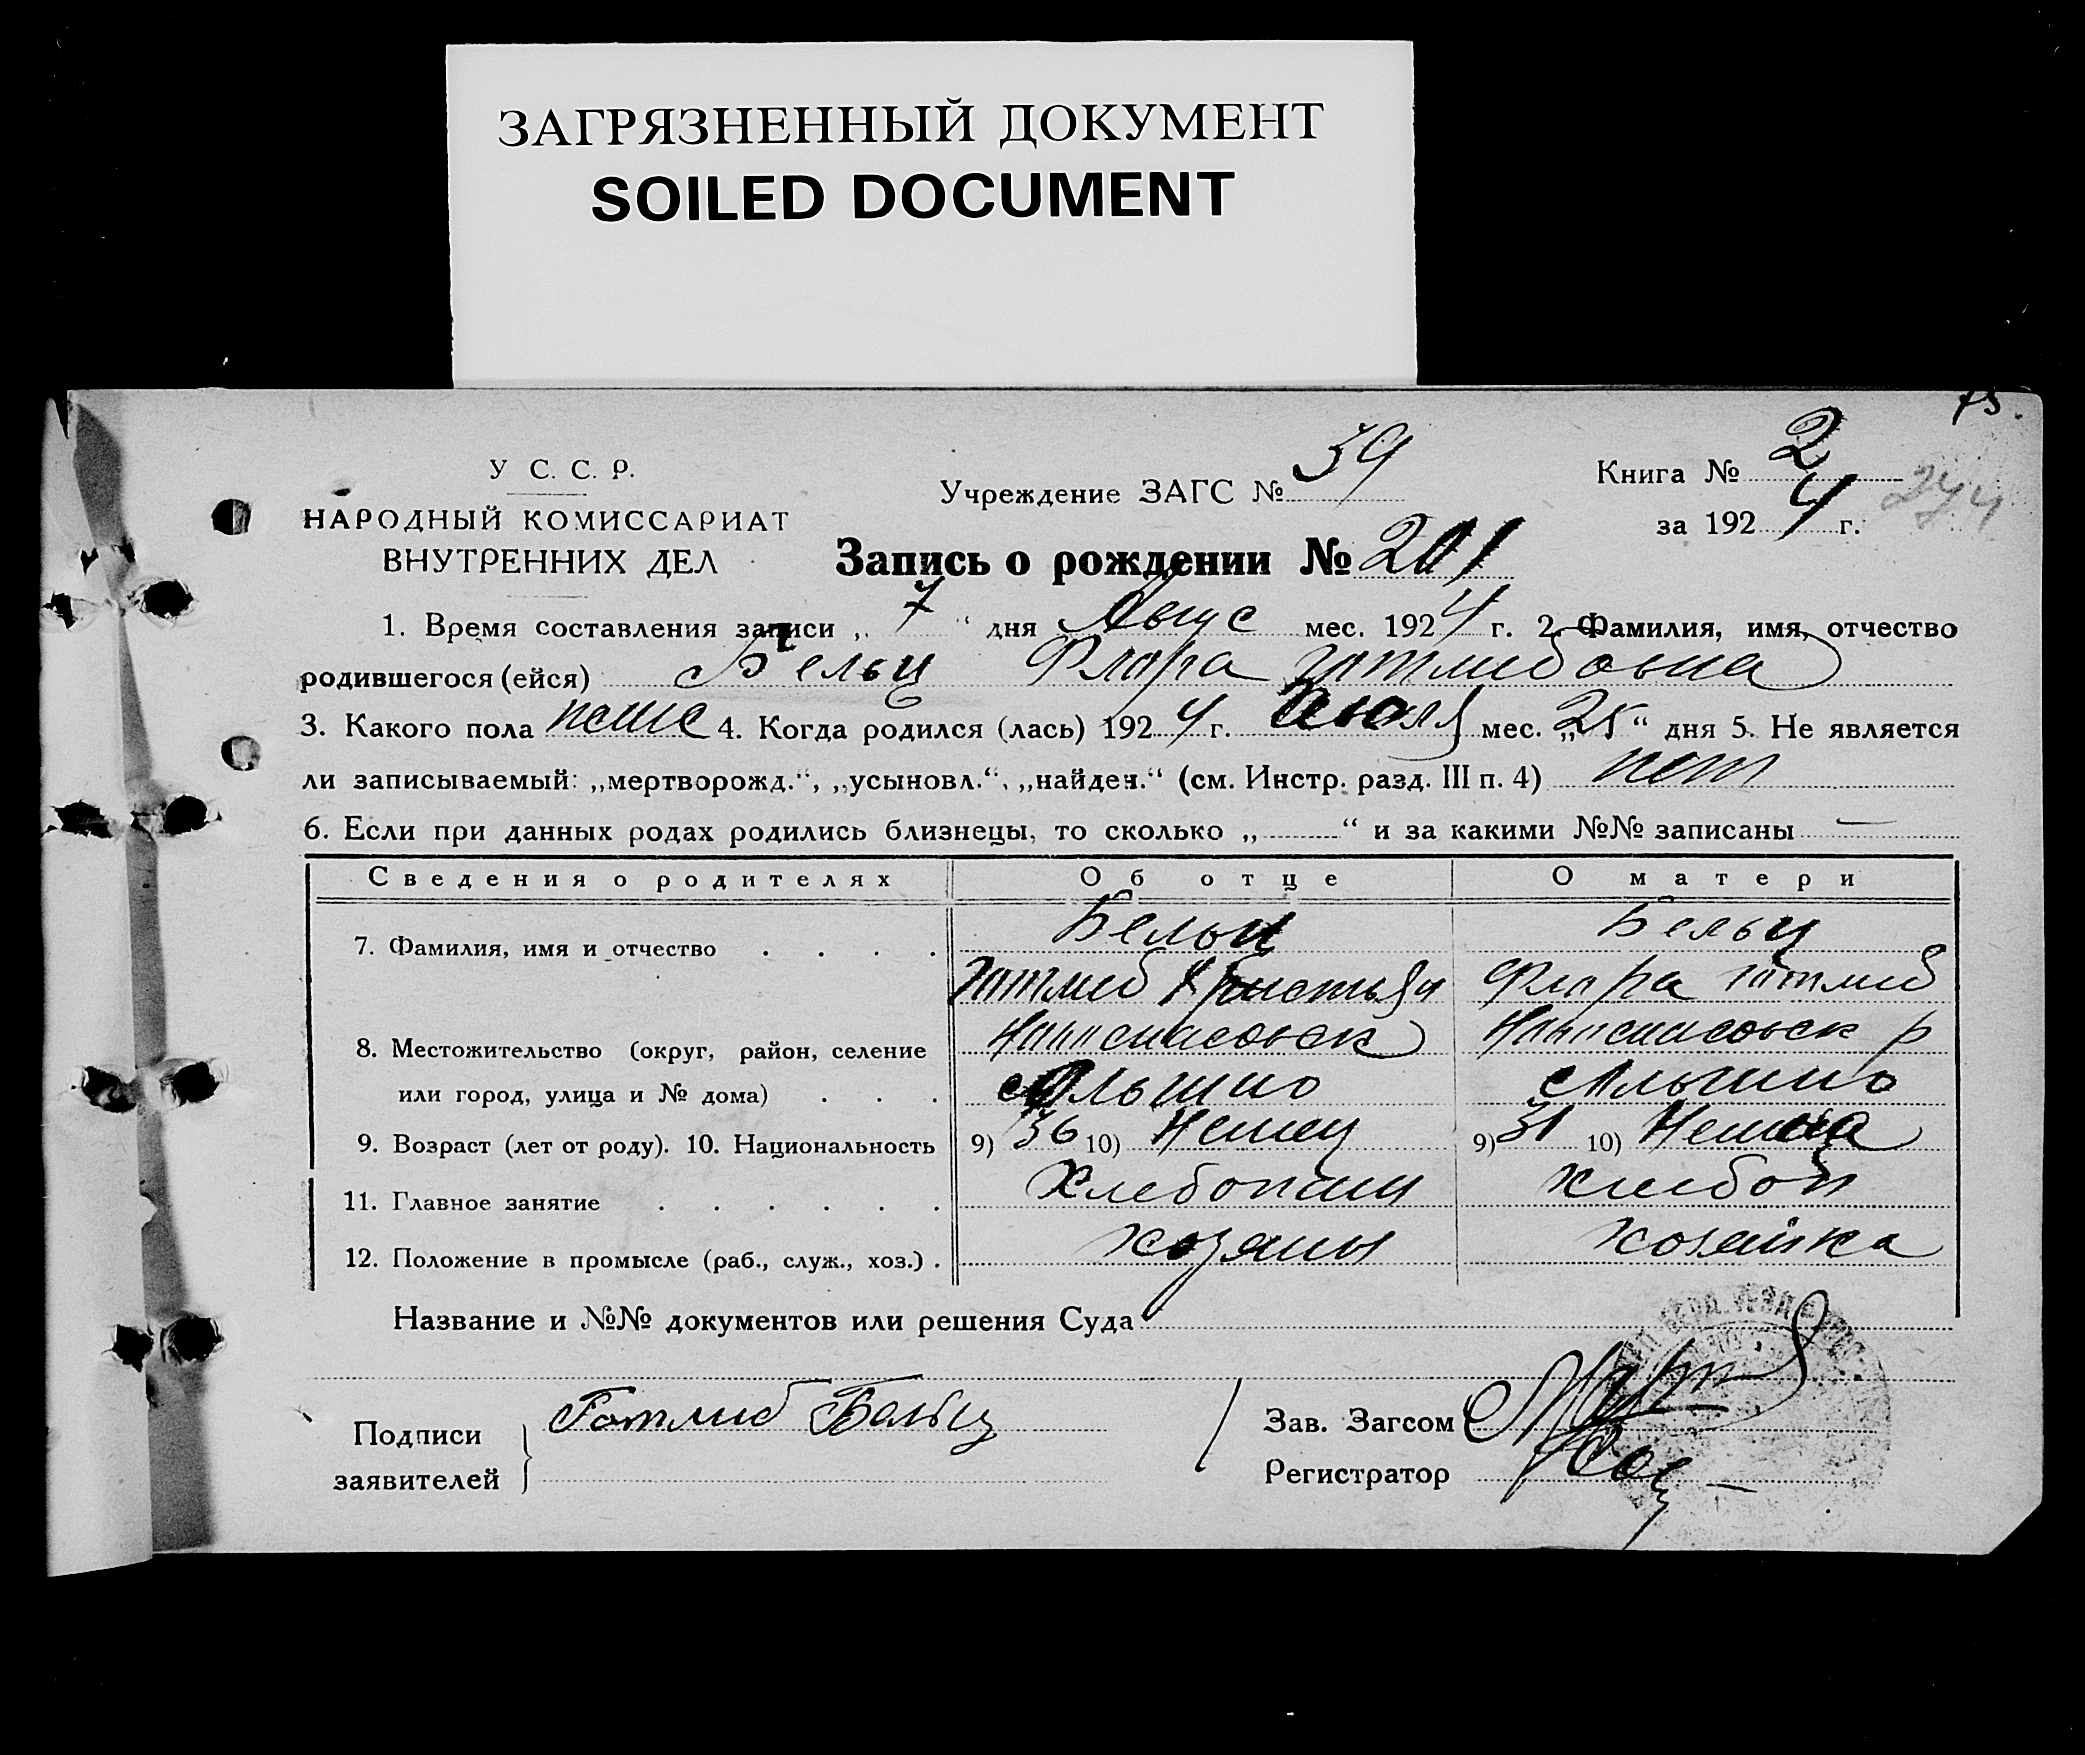 ЗАГРЯЗНЕННЫЙ ДОКУМЕНТ
SOILED DOCUMENT
75.
У С. С. Р.
НАРОДНЫЙ КОМИССАРИАТ
ВНУТРЕННИХ ДЕЛ
Учреждение ЗАГС № 39
Книга № 2
за 192 4 г.
Запись о рождении № 201
1. Время составления записи „ 7 “ дня Авгус мес. 192 4 г. 2. Фамилия, имя, отчество
родившегося (ейся) Бельц Флора Готлибовна
3. Какого пола 4. Когда родился (лась) 192 4 г. Июля мес. „ 25 “ дня 5. Не является
ли записываемый: „мертворожд.“, „усыновл.“, „найден.“ (см. Инстр. разд. III п. 4) нет
6. Если при данных родах родились близнецы, то сколько „ “ и за какими №№ записаны —
Сведения о родителях Об отце О матери
7. Фамилия, имя и отчество Бельц Бельц
Готлиб Христьян Флора Готлиб
8. Местожительство (округ, район, селение
или город, улица и № дома)
9. Возраст (лет от роду). 10. Национальность 9) 36 10) Немец 9) 31 10) Немка
11. Главное занятие Хлебопашц Хлебоп
12. Положение в промысле (раб., служ., хоз.) хозяин хозяйка
Название и №№ документов или решения Суда
Подписи
заявителей
Готлиб Бельц
Зав. Загсом
Регистратор